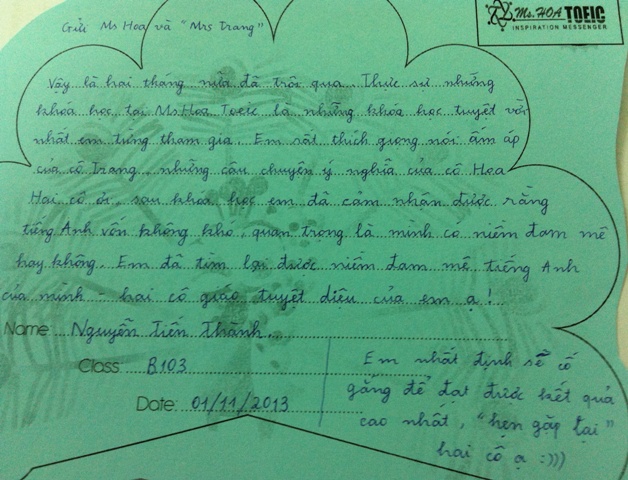 Gửi Ms Hoa và "Mrs Trang"
Ms. HOA TOEIC
INSPIRATION MESSENGER
Vậy là hai tháng nữa đã trôi qua. Thực sự những
khoá học tại Ms Hoa Toeic là những khóa học tuyệt vời
nhất em từng tham gia. Em rất thích giọng nói ấm áp
của cô Trang, những câu chuyện ý nghĩa của cô Hoa
Hai cô ơi, sau khoá học em đã cảm nhận được rằng
tiếng Anh vốn không khó, quan trọng là mình có niềm đam mê
hay không. Em đã tìm lại được niềm đam mê tiếng Anh
của mình - hai cô giáo tuyệt diệu của em ạ!
Name: Nguyễn Tiến Thành.
Class B103
Date: 01/11/2013
Em nhất định sẽ cố
gắng để đạt được kết quả
cao nhất, "hẹn gặp lại"
hai cô ạ :)))